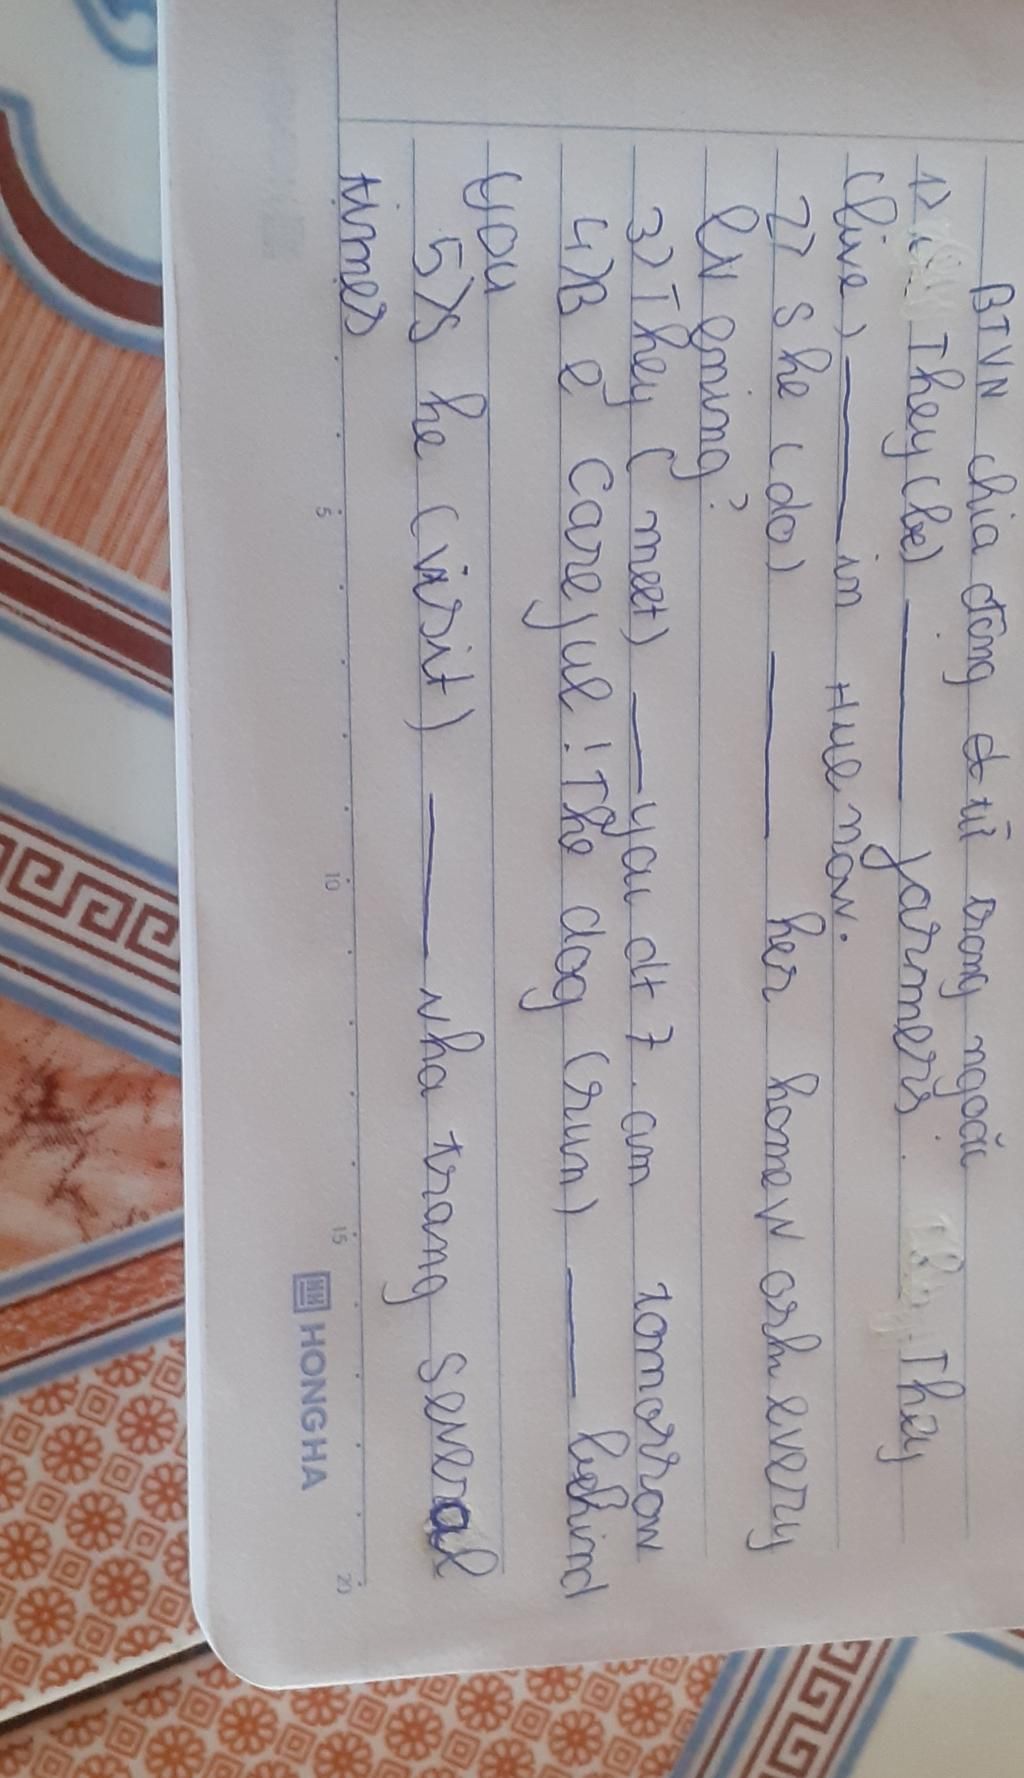 BTVN chia động từ trong ngoăc
1) They (be) ______ farmers. They
(live) ______ in Hue now.
2) She (do) ______ her homeW orhn every
ev ening?
3) They (meet) ___ you at 7 am tomorrow
4) B e careful! The dog (run) ____ behind
you
5) S he (visit) _____ Nha trang several
times
5
10
15
20
HONG HA